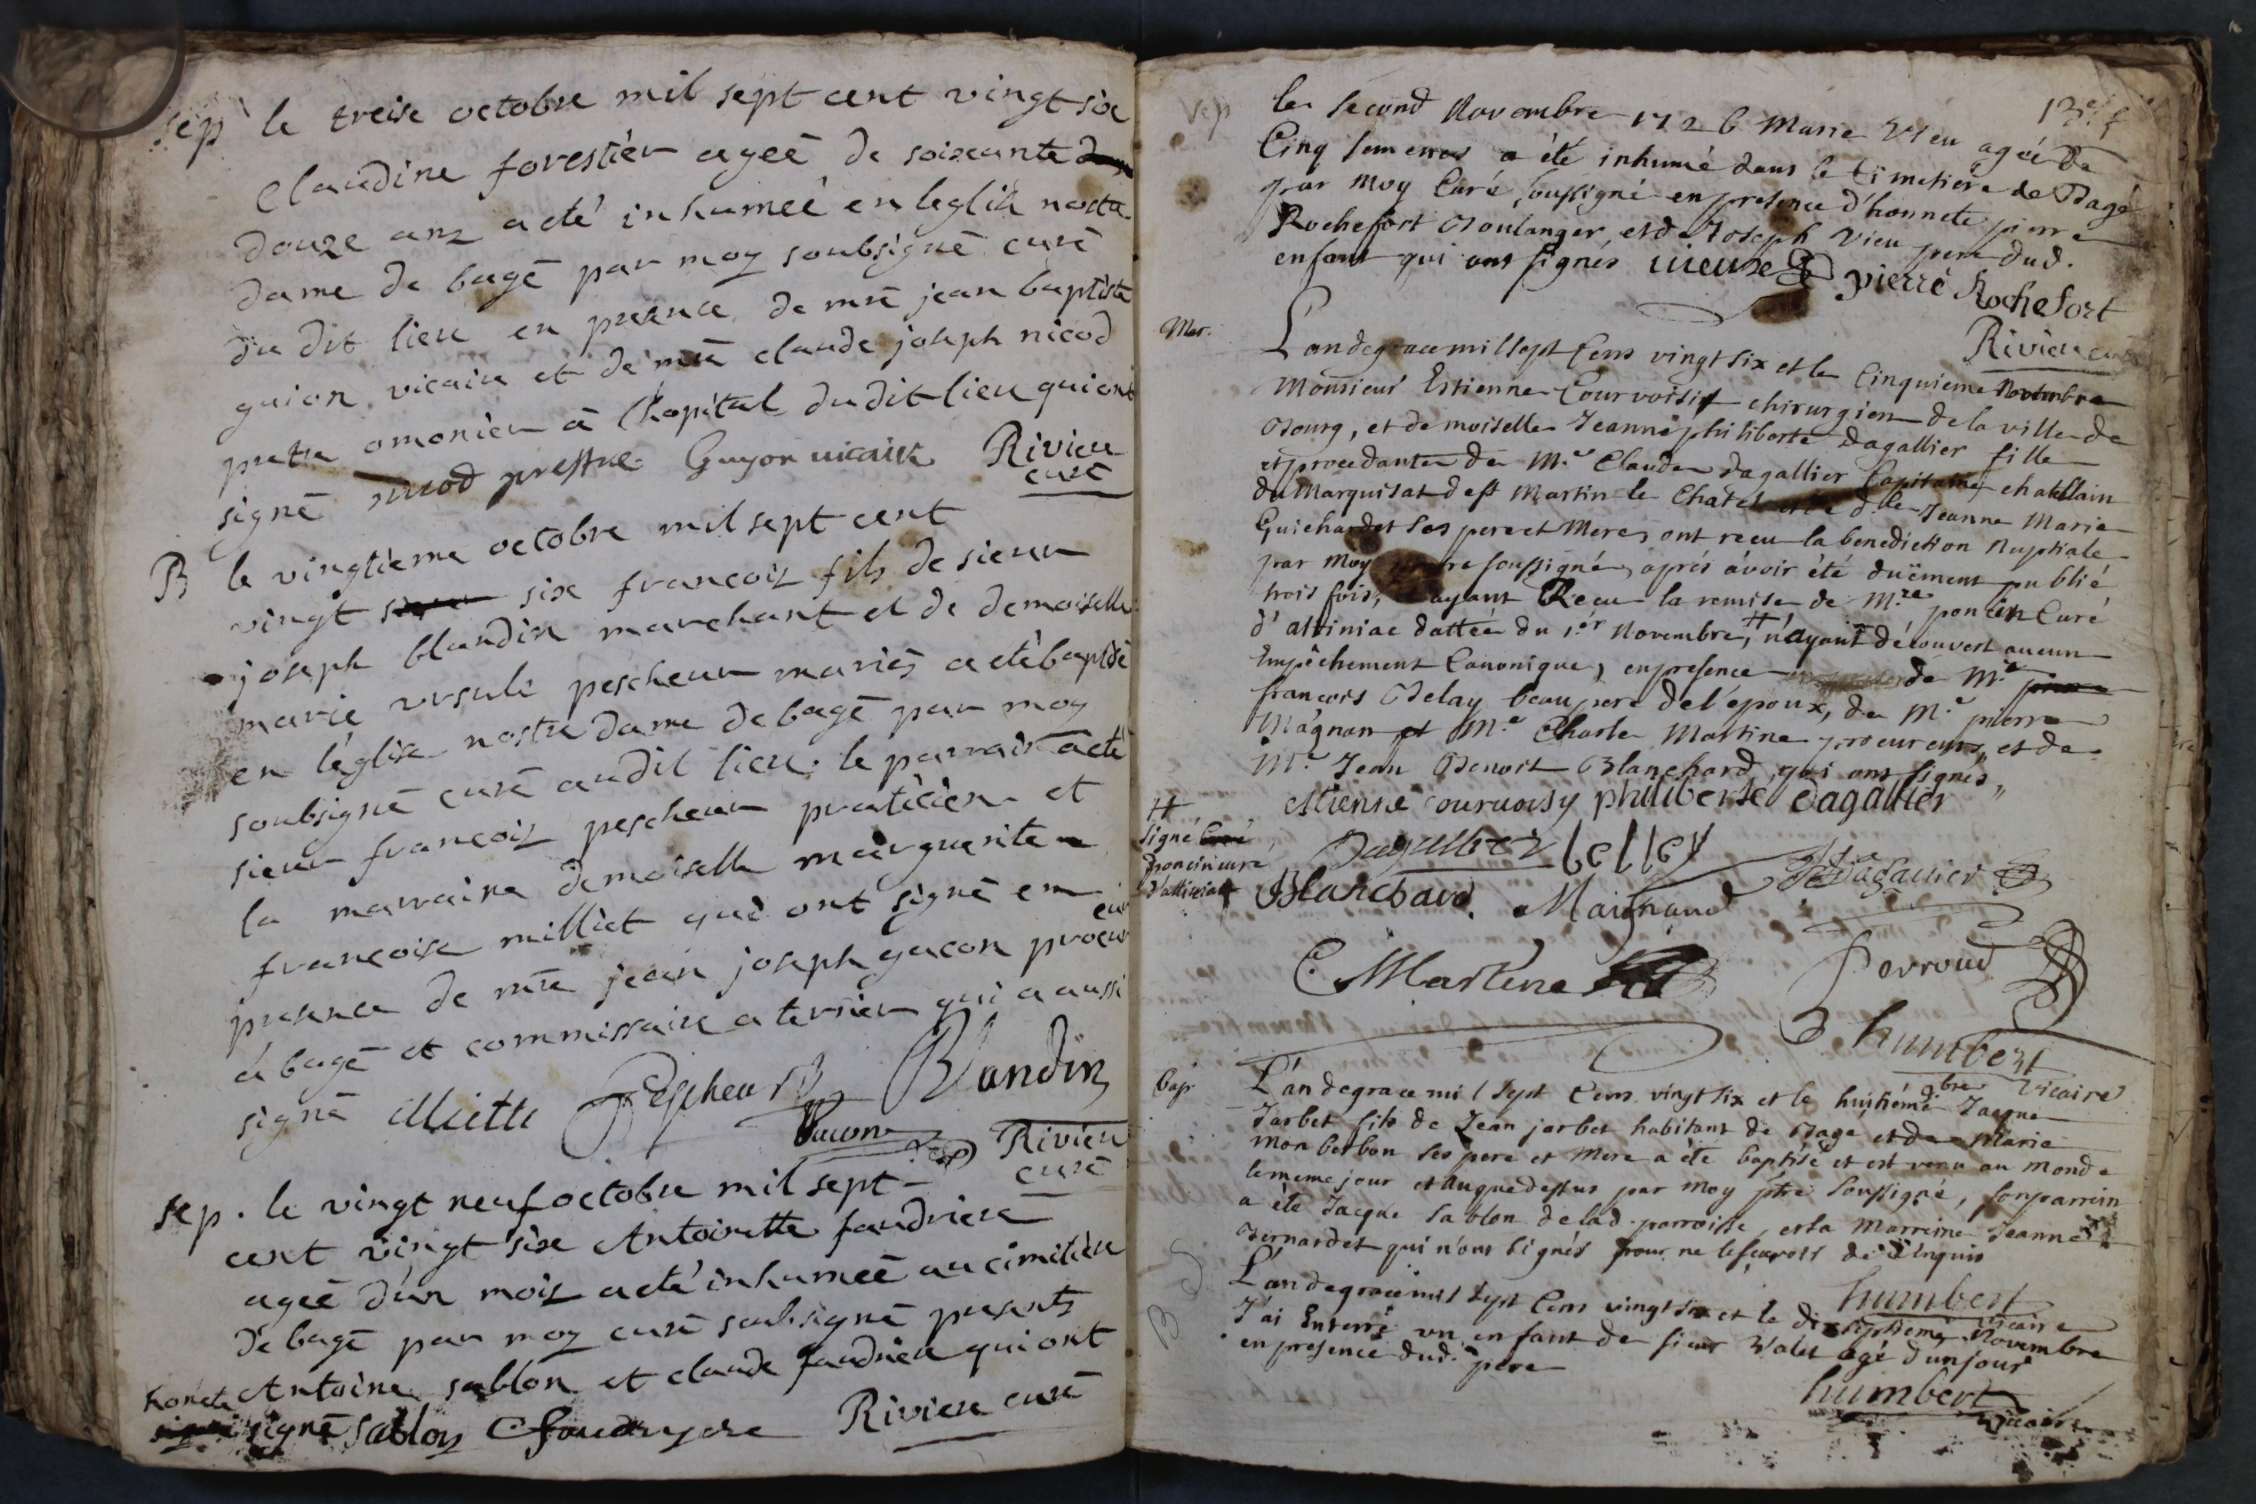 sep le treise octobre mil sept cent vingt six
Claudine forestier ageé de soixante
douze anz a eté inhumeé en leglise nostre
dame de bagé par moy soubsigné curé
du dit lieu en presence de mre jean baptiste
guion vicaire et de mre claude joseph nicod
pretre omonier a l'hopital dudit lieu qui ont
signé nicod prestre Guyon vicaire Riviere
curé
B le vingtieme octobre mil sept cent
vingt six francois fils de sieur
joseph blandin marchant et de demoiselle
marie ursule pescheur mariés a eté baptisé
en l'église nostre dame de bagé par moy
soubsigné curé audit lieu. le parrain a eté
sieur francois pescheur praticien et
la marraine demoiselle marguerite
francoise milliet qui ont signé em
presence de mre jean joseph gacon procureur
à bagé et commissaire a terrier qui a aussi
signé Miette Pescheur Blandin
Gacon Riviere
curé
sep. le vingt neuf octobre mil sept
cent vingt six Antoinette faudriere
ageé d'un mois a eté inhumeé au cimitiere
de bagé par moy curé soubsigné presents
honete Antoine sablon et claude faudriere qui ont
signé sablon C faudryere Riviere curé
Sep le second Novembre 1726 Marie Vieu agée de
Cinq semenes a été inhumé dans le Cimetiere de Bagé
par moy Curé soussigné en presence d'honnete pierre
Rochefort Boulanger, et de Joseph Vieu pere dud.
enfant qui ont signés vieux pierre Rochefort
Riviere curé
Mar. L'an de grace mil sept Cens vingt six et le Cinquieme Novembre
Monsieur Estienne Courvoisy chirurgien de la ville de
Bourg, et demoiselle Jeanne philiberte Dagallier fille
et procedante de M.e Claude Dagallier Capitaine chatelain
du Marquisat de st Martin le Chatel et de d.lle Jeanne Marie
Guichardet ses pere et Mere, ont recu la benediction Nuptiale
par Moy soussigné, aprés avoir été duëment publié
trois fois, ayant Recu la remise de M.re poncin Curé
d'attiniac dattée du 1.er Novembre, # n'ayant découvert aucun
Empêchement Canonique, en presence de M.e
francois Belay beaupere de l'époux, de M.e pierre
Magnan et M.e Charle Martine procureurs, et de
M.e Jean Benoit Blanchard, qui ont signés
estienne courvoisy philiberte Dagallier
#
signé
poncin cure
d'attiniat
Dagallier belley
Blanchard. Maignand Dagallier
C. Martine Perroud
humbert
vicaire
bap L'an de grace mil sept Cens vingt six et le huitiéme 9bre Jacque
Jarbet fils de Jean jarbet habitant de Bage et de Marie
Monberbon ses pere et Mere a été baptisé et est venu au monde
le meme jour et an que dessus par moy ptre soussigné, son parrein
a été Jacque Sablon de lad. parroisse, et sa Marreine Jeanne
Bernardet qui n'ont signés pour ne le scavoir de ce Enquis
humbert
vicaire
S L'an de grace mil sept Cens vingt six et le dix septieme Novembre
J'ai Enterré un enfant de sieur Valet agé d'un jour
en presence dud. pere
humbert
vicaire